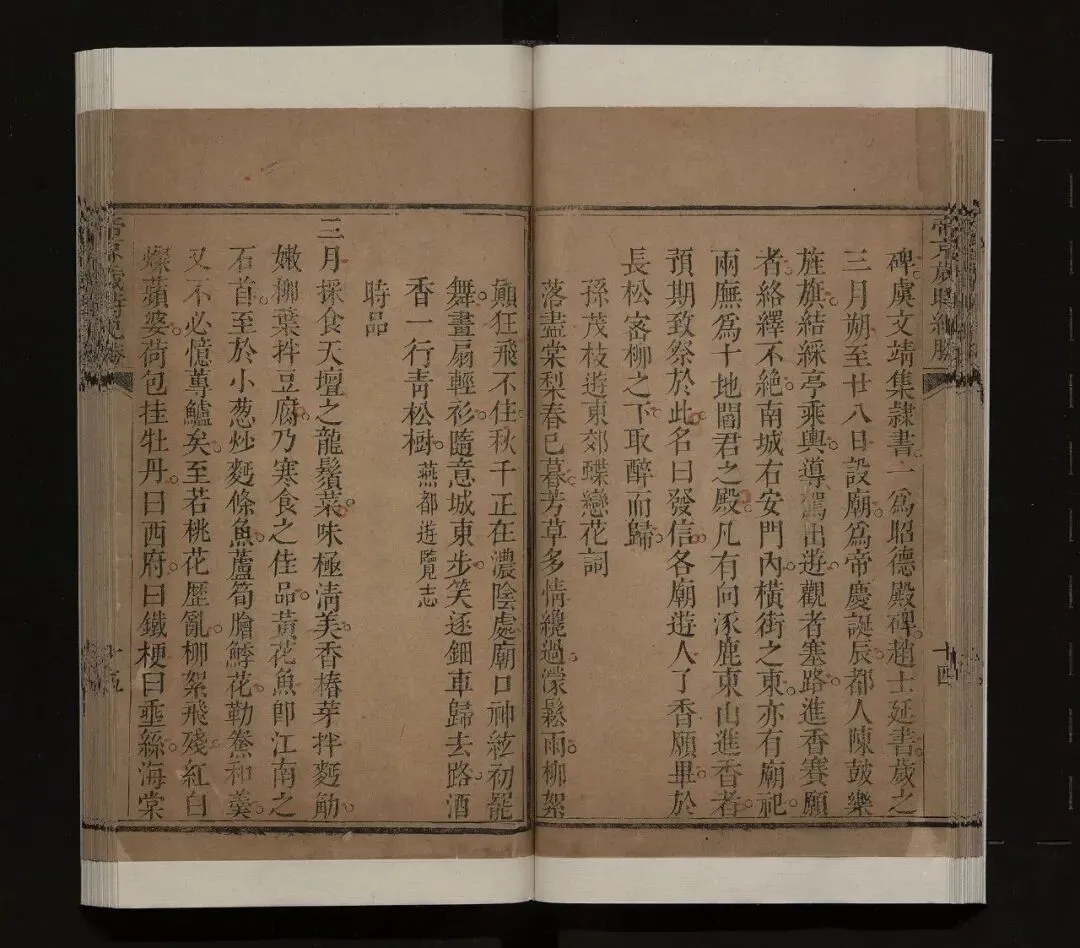 碑虞文靖集隸書一爲昭德殿碑趙士延書歲之
三月朔至廿八日設廟爲帝慶誕辰都人陳鼓樂
旌旗結綵亭乘輿導駕出遊觀者塞路進香賽願
者絡繹不絶南城右安門內橫街之東亦有廟祀
兩廡爲十地閻君之殿凡有向涿鹿東山進香者
預期致祭於此名曰發信各廟遊人了香願畢於
長松密柳之下取醉而歸
孫茂枝遊東郊蝶戀花詞
落盡棠梨春巳暮芳草多情纔過濛鬆雨柳絮
顚狂飛不住秋千正在濃陰處廟口神絃初罷
舞畫扇輕衫隨意城東步笑逐鈿車歸去路酒
香一行靑松樹 燕都遊覽志
時品
三月採食天壇之龍鬚菜味極淸美香椿芽拌麪觔
嫩柳葉拌豆腐乃寒食之佳品黃花魚卽江南之
石首至於小葱炒麪條魚蘆筍膾鱘花勒鮝和羹
又不必憶蓴鱸矣至若桃花歷亂柳絮飛殘紅白
爍蘋婆荷包挂牡丹曰西府曰鐵梗曰垂絲海棠
帝京歲時紀勝
十四
帝京歲時紀勝
十五